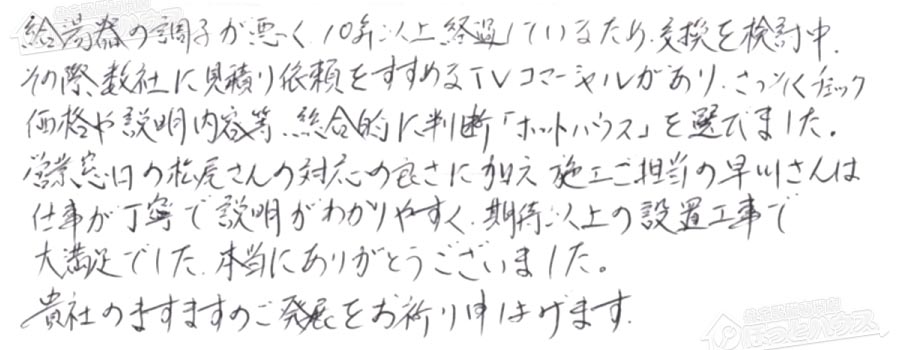 給湯器の調子が悪く、10年以上経過しているため、交換を検討中、
その際数社に見積り依頼をすすめるTVコマーシャルがあり、さっそくチェック
価格や説明内容等、総合的に判断「ホットハウス」を選びました。
営業窓口の松尾さんの対応の良さに加え 施工ご担当の早川さんは
仕事が丁寧で説明がわかりやすく、期待以上の設置工事で
大満足でした、本当にありがとうございました。
貴社のますますのご発展をお祈り申しあげます。
ほっとハウス